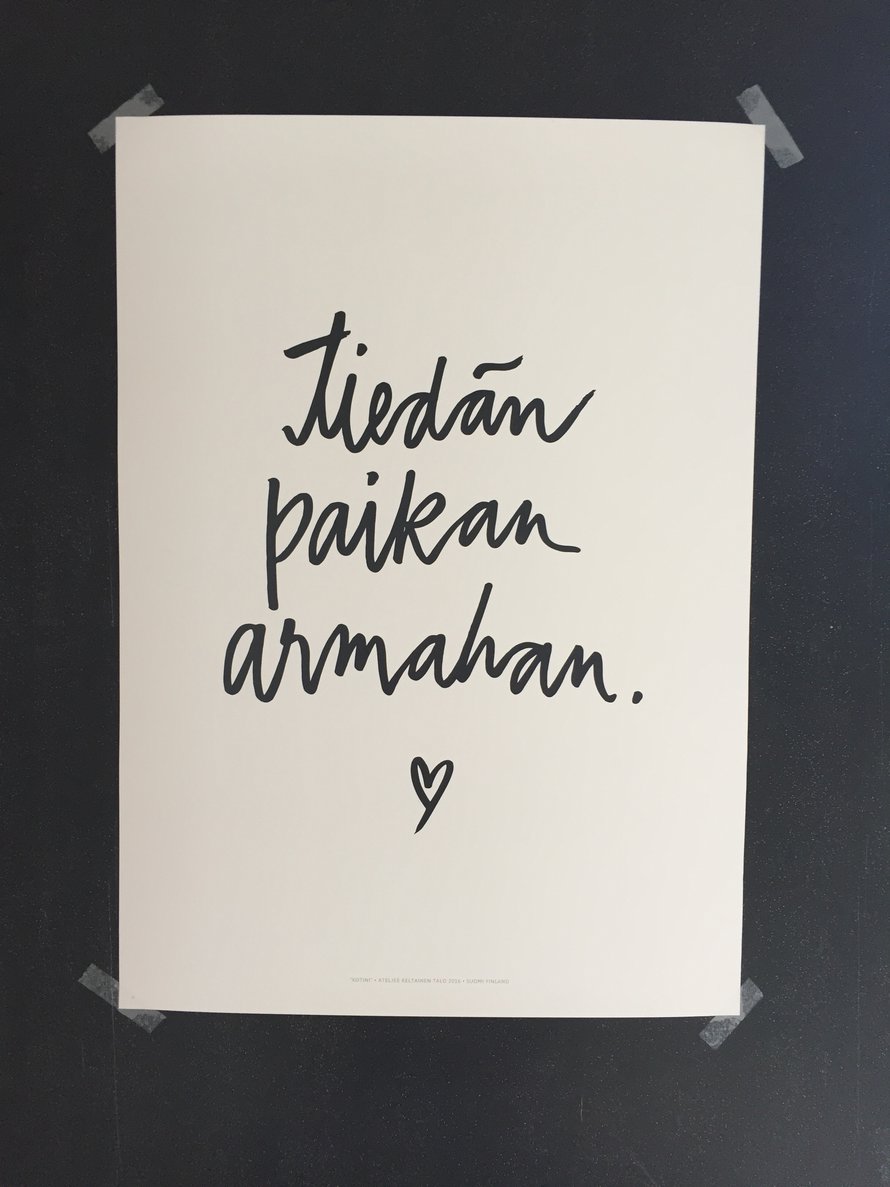 tiedän
paikan
armahan.
"KOTINI" • ATELJEE KELTAINEN TALO 2016 • SUOMI FINLAND